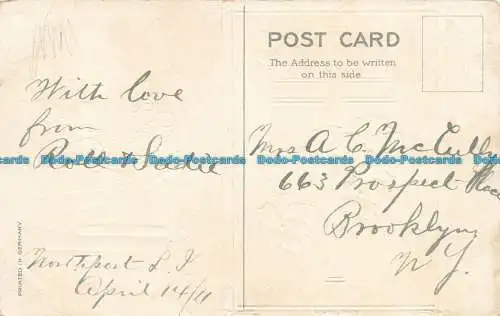 With love
from
Roll & Sadie
Northport L. I
April 14/11
PRINTED IN GERMANY.
POST CARD
The Address to be written
on this side.
Mrs A C McCully
663 Prospect Place
Brooklyn
N Y.
Bodo-Postcards Bodo-Postcards Bodo-Postcards Bodo-Postcards